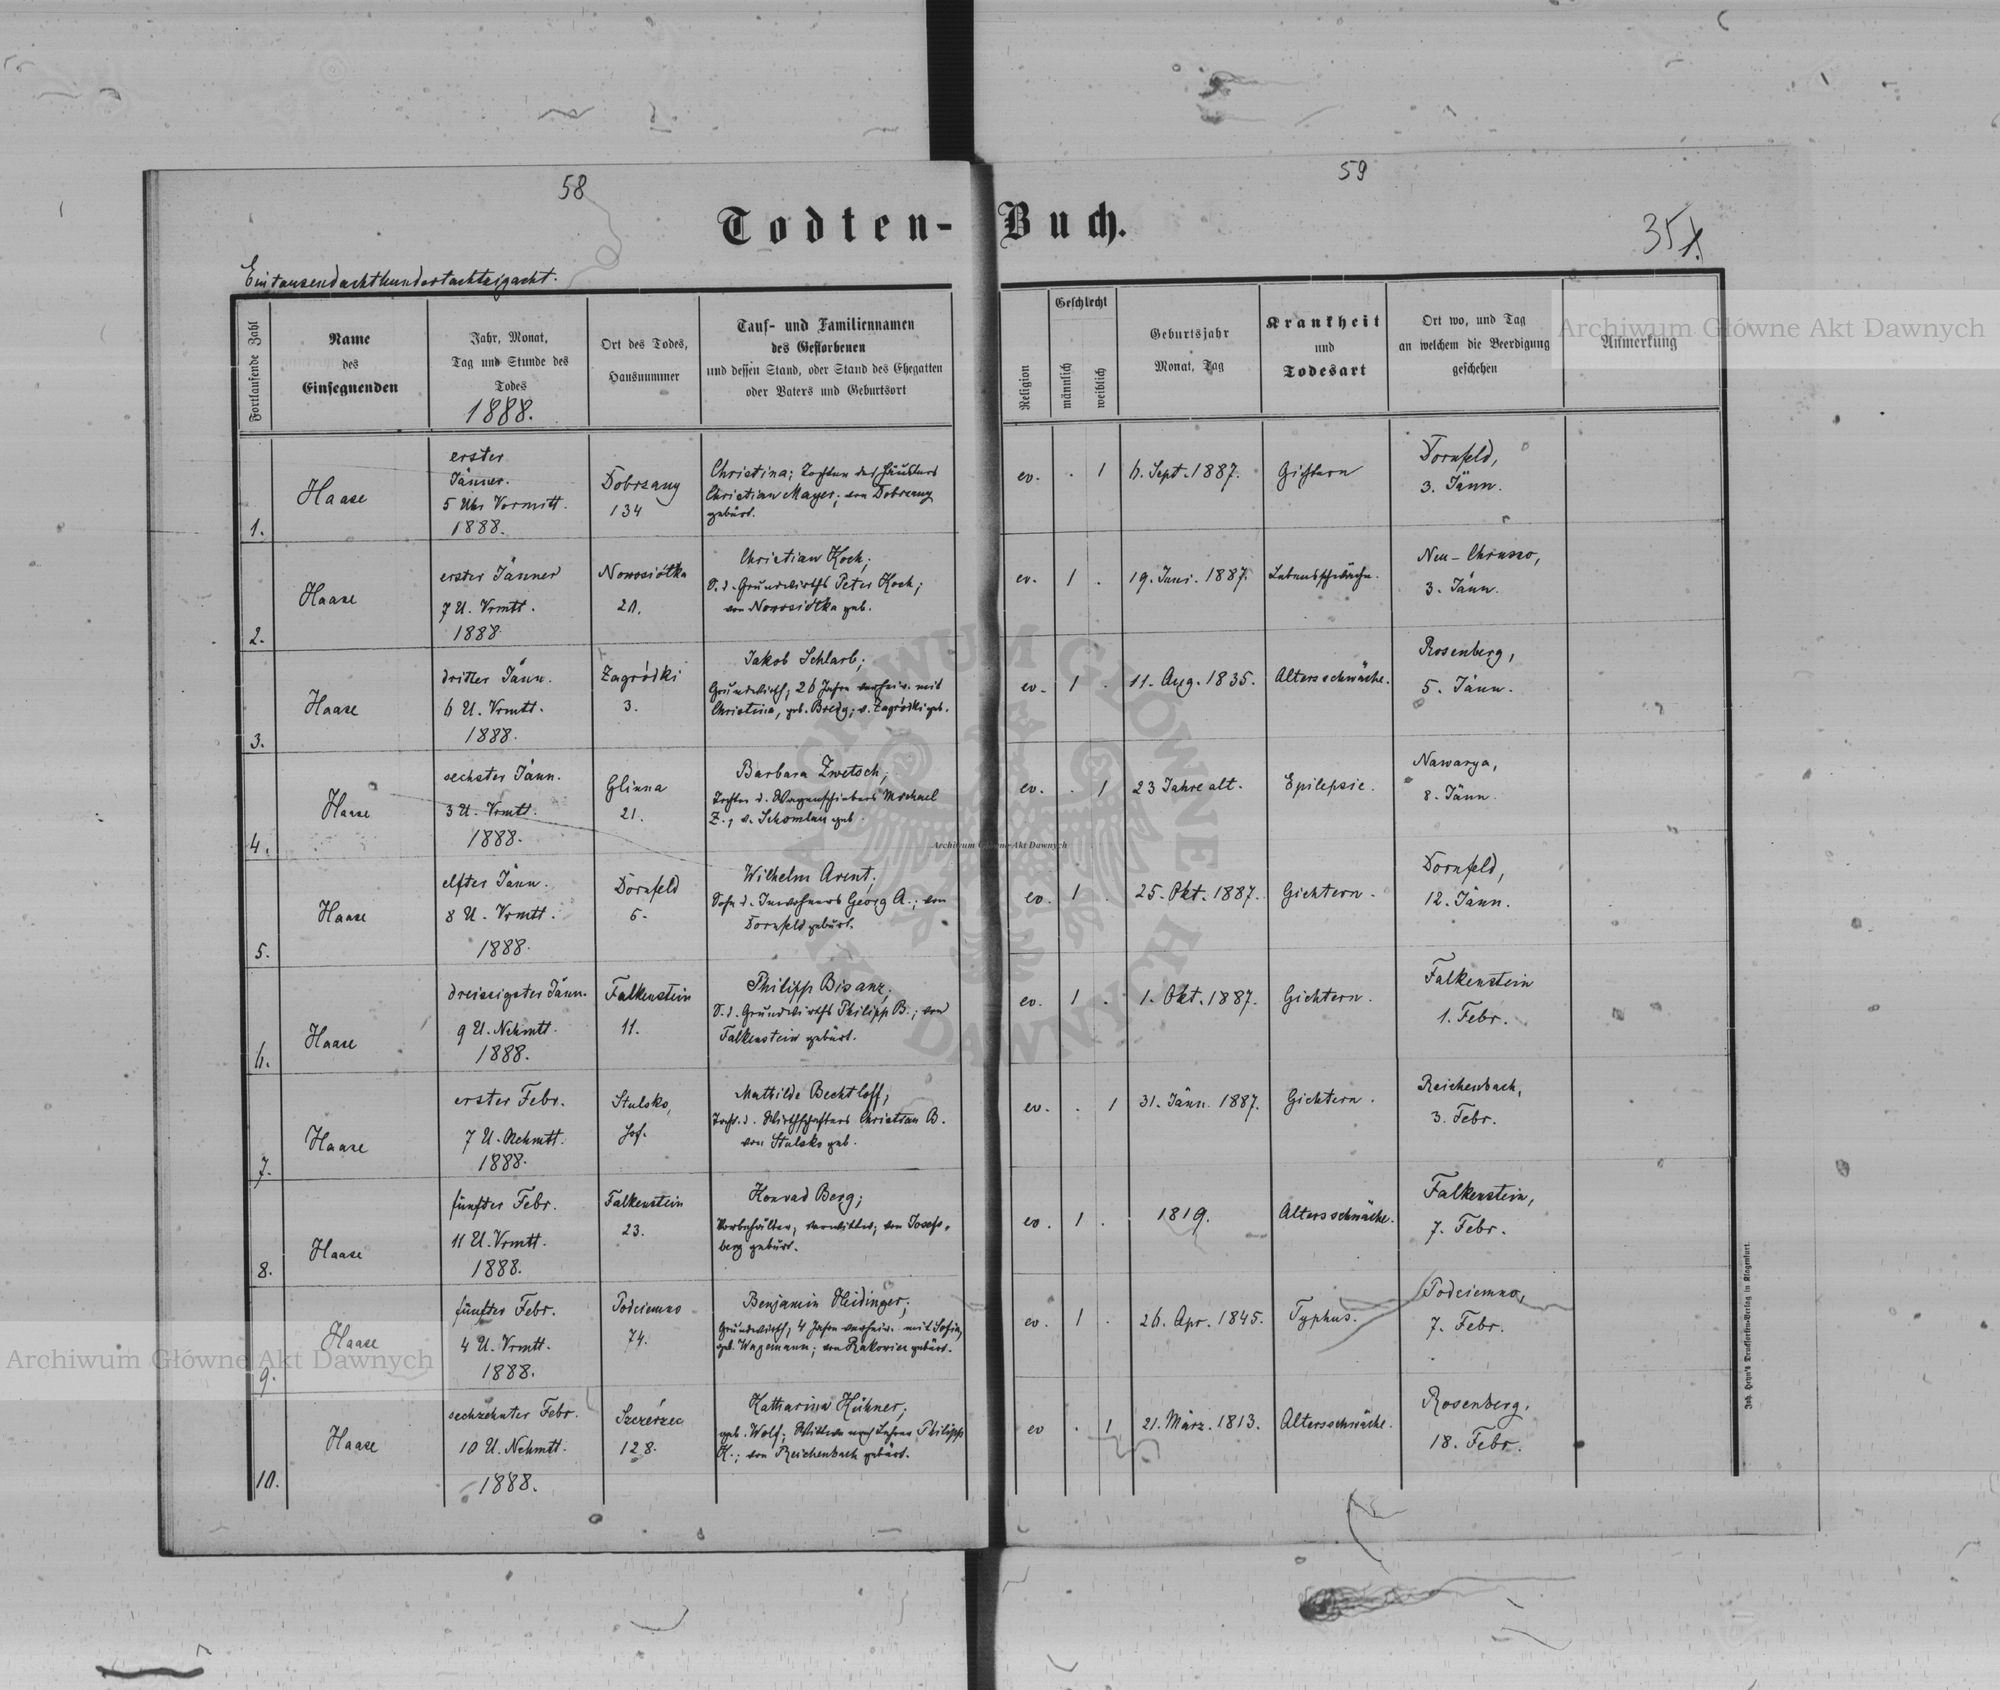 58
59
Todten-Buch.
35
Eintausendachthundertachtzigacht.
Fortlaufende Zahl
Name
des
Einsegnenden
Jahr, Monat,
Tag und Stunde des
Todes
1888.
Ort des Todes,
Hausnummer
Tauf- und Familiennamen
des Gestorbenen
und dessen Stand, oder Stand des Ehegatten
oder Vaters und Geburtsort
Religion
Geschlecht
männlich
weiblich
Geburtsjahr
Monat, Tag
Krankheit
und
Todesart
Ort wo, und Tag
an welchem die Beerdigung
geschehen
Anmerkung
1.
Haase
erster
Jänner.
5 Uhr Vormitt.
1888.
Dobrzany
134
Christina; Tochter des Häuslers
Christian Mayer; von Dobrzany
gebürt.
ev. . 1
6. Sept. 1887.
Gichtern
Dornfeld,
3. Jänn.
2.
Haase
erster Jänner
7 U. Vrmtt.
1888.
Nowosiółka
21.
Christian Koch;
S. d. Grundwirths Peter Koch;
von Nowosiółka geb.
ev. 1 .
19. Juni. 1887.
Lebensschwäche.
Neu-Chrusno,
3. Jänn.
3.
Haase
dritter Jänn.
6 U. Vrmtt.
1888.
Zagródki
3.
Jakob Schlarb;
Grundwirth; 26 Jahre verheir. mit
Christina, geb. Bredy; v. Zagródki geb.
ev. 1 .
11. Aug. 1835.
Altersschwäche.
Rosenberg,
5. Jänn.
4.
Haase
sechster Jänn.
3 U. Vrmtt.
1888.
Glinna
21.
Barbara Zwetsch;
Tochter d. Wagenschiebers Michael
Z.; v. geb.
ev. . 1
23 Jahre alt.
Epilepsie.
Nawarya,
8. Jänn.
5.
Haase
elfter Jänn.
8 U. Vrmtt.
1888.
Dornfeld
5.
Wilhelm Arent;
Sohn d. Inwohners Georg A.; von
Dornfeld gebürt.
ev. 1 .
25. Okt. 1887.
Gichtern.
Dornfeld,
12. Jänn.
6.
Haase
dreissigster Jänn.
9 U. Nchmtt.
1888.
Falkenstein
11.
Philipp Bisanz;
S. d. Grundwirths Philipp B.; von
Falkenstein gebürt.
ev. 1 .
1. Okt. 1887.
Gichtern.
Falkenstein
1. Febr.
7.
Haase
erster Febr.
7 U. Nchmtt.
1888.
Stulsko,
Hof.
Mathilde Bechtloff;
Tocht. d. Wirthschafters Christian B.
von Stulsko geb.
ev. . 1
31. Jänn. 1887.
Gichtern.
Reichenbach,
3. Febr.
8.
Haase
fünfter Febr.
11 U. Vrmtt.
1888.
Falkenstein
23.
Konrad Berg;
Vorbehälter; verwitter; von Josefs-
berg gebürt.
ev. 1 .
1819.
Altersschwäche.
Falkenstein,
7. Febr.
9.
Haase
fünfter Febr.
4 U. Vrmtt.
1888.
Podciemno
74.
Benjamin Heidinger;
Grundwirth; 4 Jahre verheir. mit Sofia,
geb. Wagemann; von Rakowiec gebürt.
ev. 1 .
26. Apr. 1845.
Typhus.
Podciemno,
7. Febr.
10.
Haase
sechzehnter Febr.
10 U. Nchmtt.
1888.
Szczérzec
128.
Katharina Hühner;
geb. Wolf; Wittwe nach Lehrer Philipp
H.; von Reichenbach gebürt.
ev . 1
21. März. 1813.
Altersschwäche.
Rosenberg.
18. Febr.
Joh. Heyn's Drucksorten-Verlag in Klagenfurt.
Archiwum Główne Akt Dawnych
Archiwum Główne Akt Dawnych
Archiwum Główne Akt Dawnych
ARCHIWUM GŁÓWNE AKT DAWNYCH